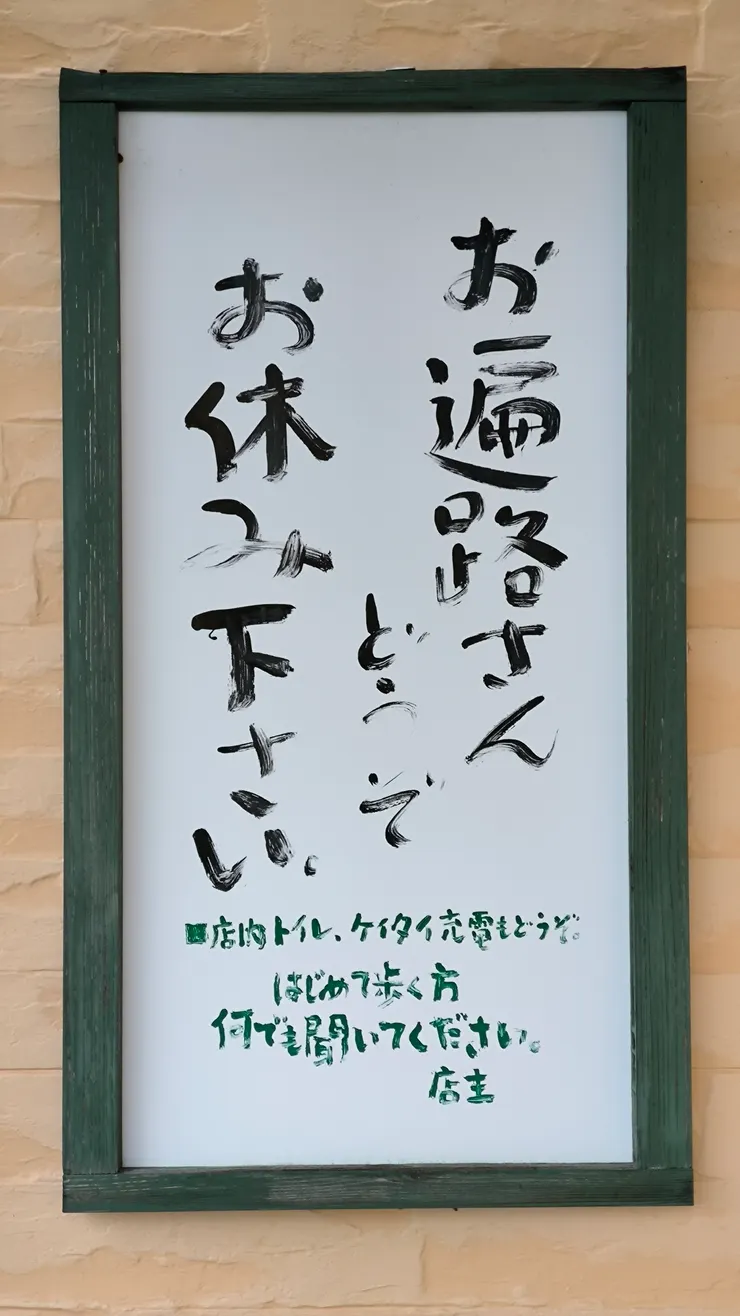 お遍路さん
どうぞ
お休み下さい。
■店内トイレ、ケイタイ充電もどうぞ。
はじめて歩く方
何でも聞いてください。
店主